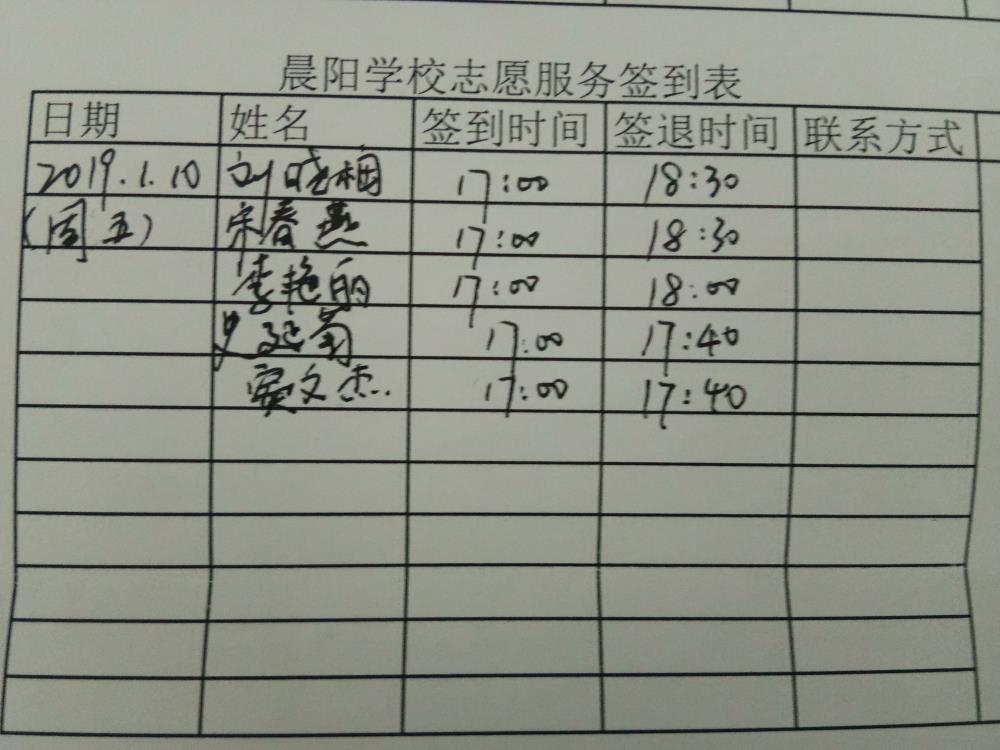 晨阳学校志愿服务签到表
日期 姓名 签到时间 签退时间 联系方式
2019.1.10 刘晓梅 17:00 18:30
(周五) 宋春燕 17:00 18:30
李艳丽 17:00 18:00
17:00 17:40
窦文杰 17:00 17:40